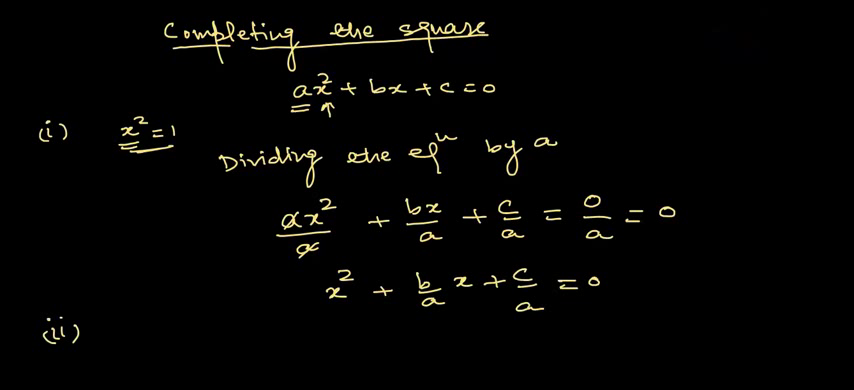 Completing the square
ax² + bx + c = 0
(i) x² = 1
Dividing the eqⁿ by a
ax²/a + bx/a + c/a = 0/a = 0
x² + b/a x + c/a = 0
(ii)